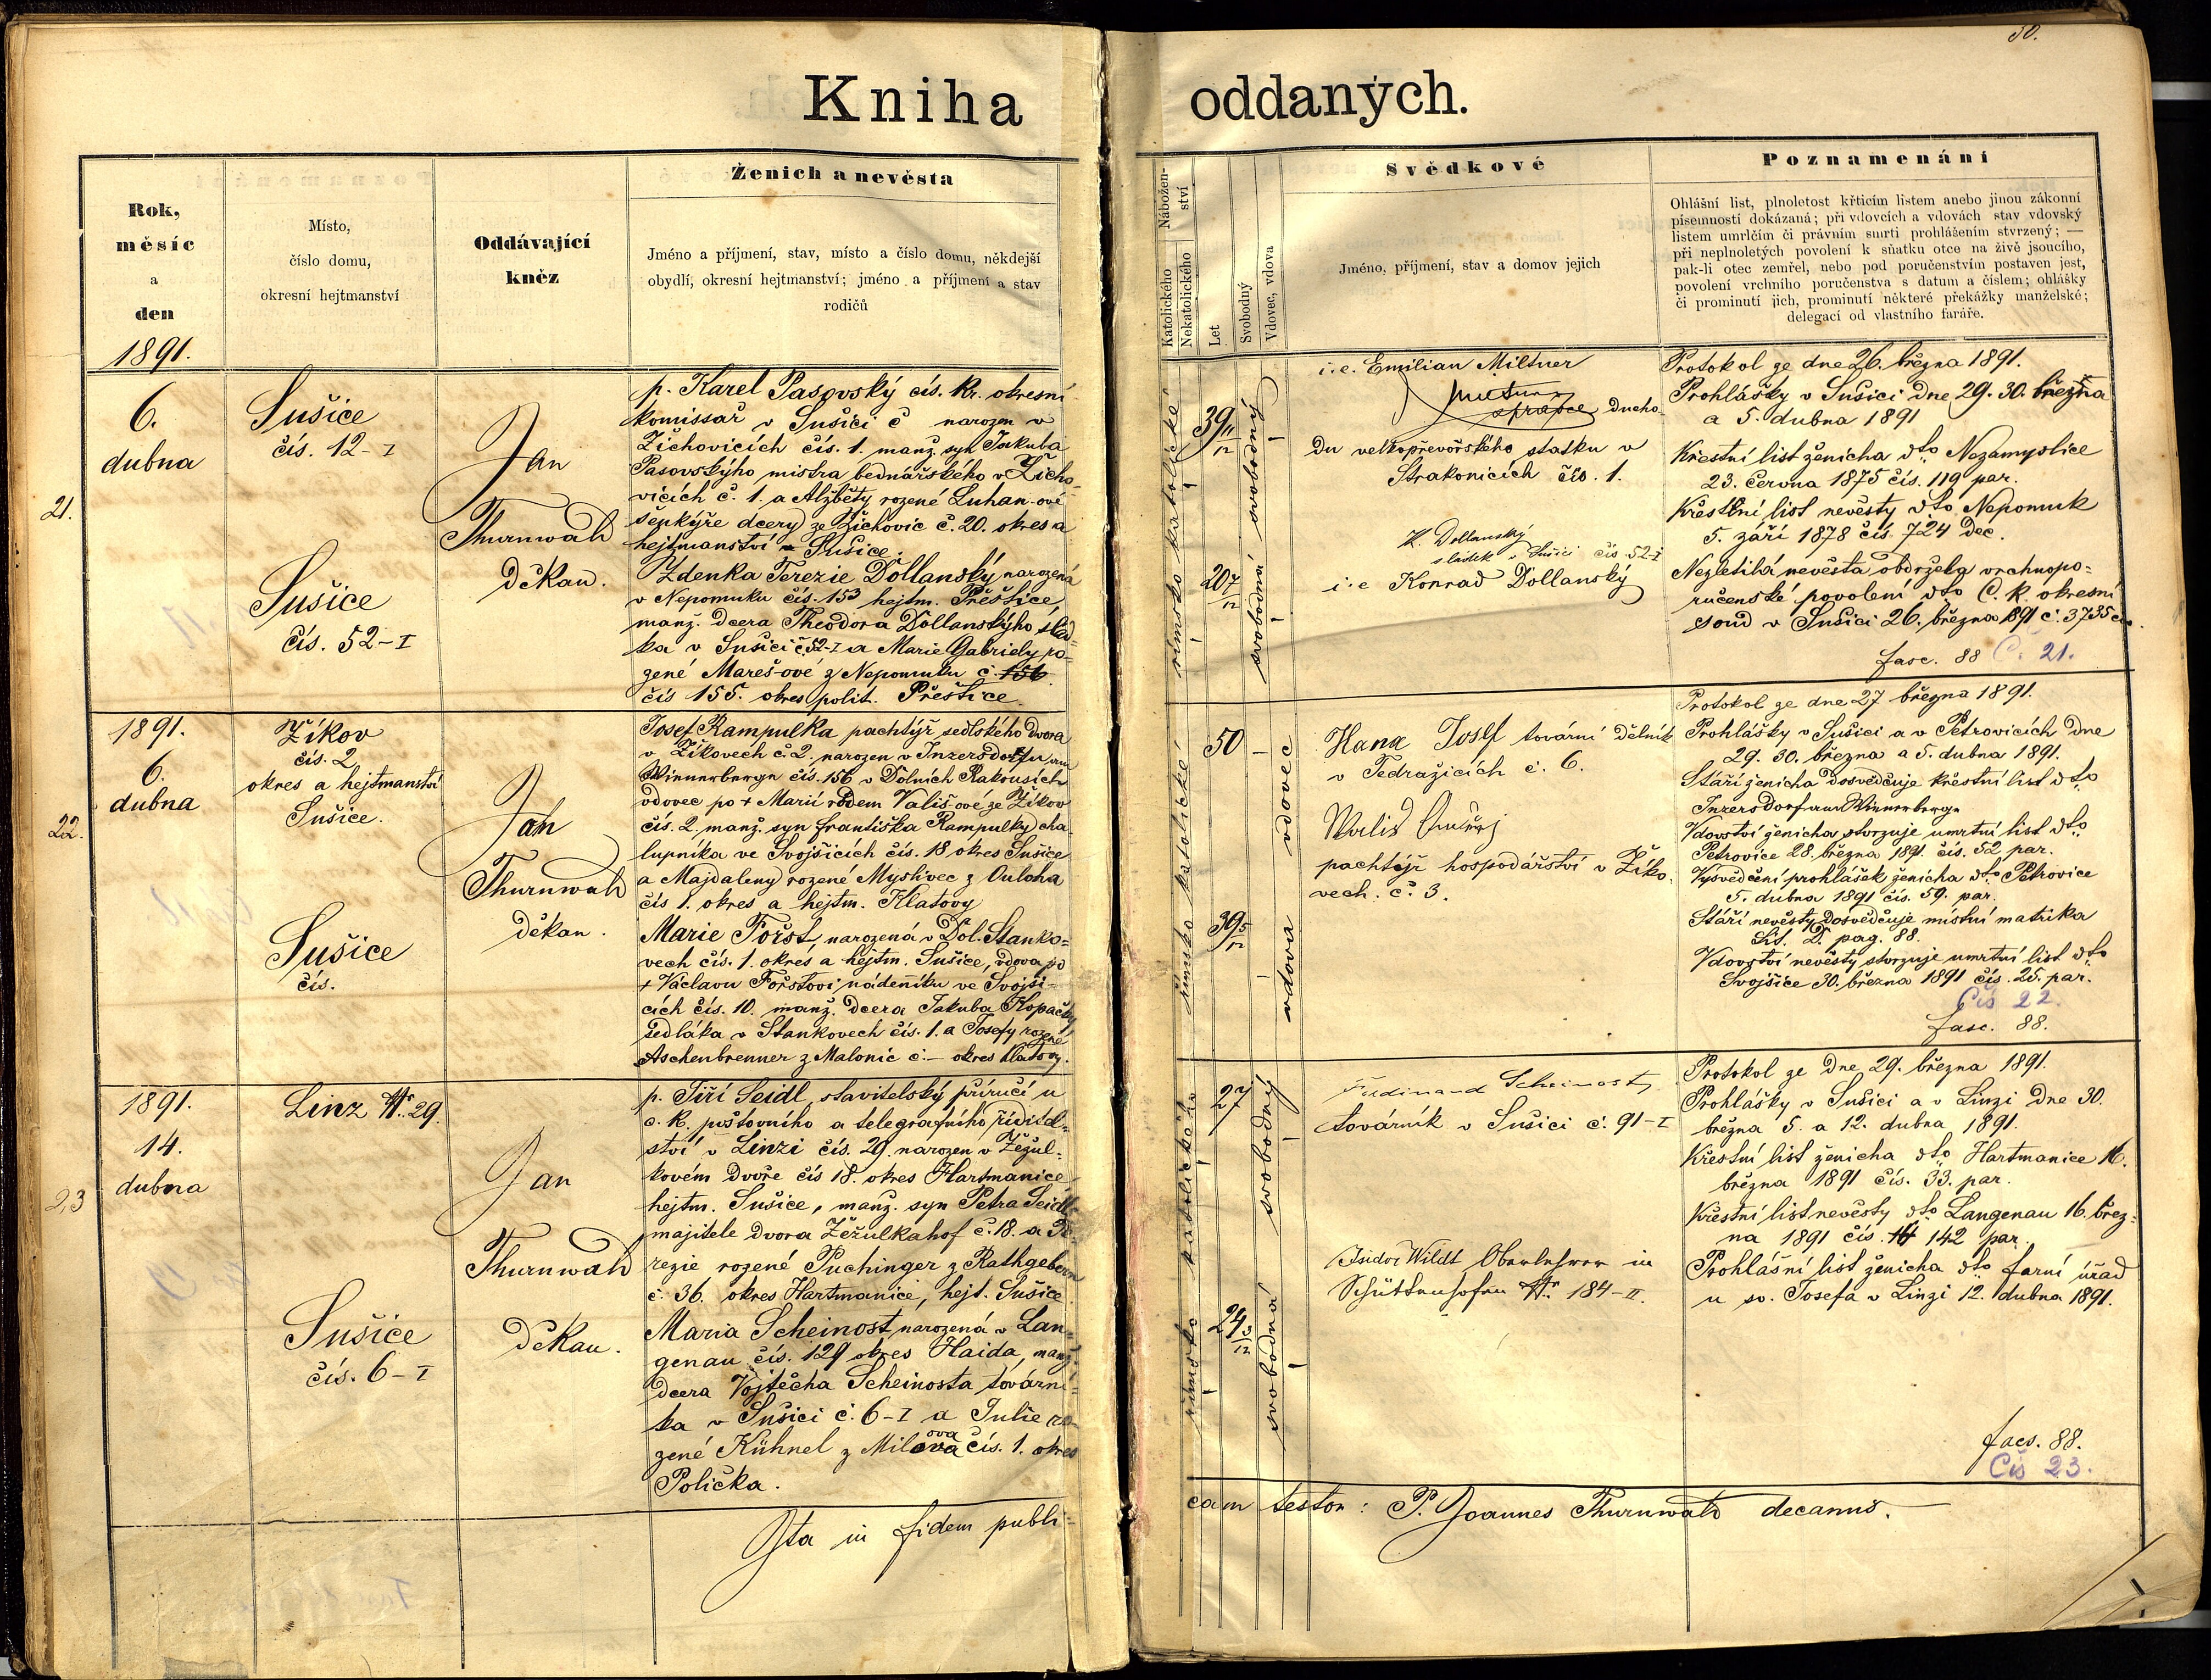 50.
Kniha oddaných.
Rok,
měsíc
a
den
1891.
Místo,
číslo domu,
okresní hejtmanství
Oddávající
kněz
Ženich a nevěsta
Jméno a příjmení, stav, místo a číslo domu, někdejší
obydlí, okresní hejtmanství; jméno a příjmení a stav
rodičů
Nábožen-
ství
Katolického
Nekatolického
Let
Svobodný
Vdovec, vdova
Svědkové
Jméno, příjmení, stav a domov jejich
Poznamenání
Ohlášní list, plnoletost křticím listem anebo jinou zákonní
písemností dokázaná; při vdovcích a vdovách stav vdovský
listem umrlčím či právním smrti prohlášením stvrzený; —
při neplnoletých povolení k sňatku otce na živě jsoucího,
pak-li otec zemřel, nebo pod poručenstvím postaven jest,
povolení vrchního poručenstva s datum a číslem; ohlášky
či prominutí jich, prominutí některé překážky manželské;
delegací od vlastního faráře.
21.
6.
dubna
Sušice
čís. 12-I
Sušice
čís. 52-I
Jan
Thurnwald
děkan.
p. Karel Pasovský cís. kr. okresní
komissař v Sušici č narozen v
Žichovicích čís. 1. manž. syn Jakuba
Pasovskýho mistra bednářského v Žicho-
vicích č. 1. a Alžběty rozené Luhan-ové
šenkýře dcery ze Žichovic č. 20. okres a
hejtmanství Sušice.
Zdenka Terezie Dollanský narozená
v Nepomuku čís. 153 hejtm. Přeštice
manž. dcera Theodora Dollanskýho slád-
ka v Sušici č 52-I a Marie Gabriely ro-
zené Mareš-ové z Nepomuku č. 156
čís 155. okres polit. Přeštice.
římsko katolické
39 11/12
svobodný
20 7/12
svobodná
i. e. Emilian Miltner
správce ducho-
du velkopřevorského statku v
Strakonicích čís. 1.
K. Dollanský
sládek v Sušici čís. 52-I
i. e Konrad Dollanský
Protokol ze dne 26. března 1891.
Prohlášky v Sušici dne 29. 30. března
a 5. dubna 1891
Křestní list ženicha dto Nezamyslice
23. června 1875 čís. 119 par.
Křestní list nevěsty dto Nepomuk
5. září 1878 čís. 724 dec.
Nezletilá nevěsta obdržela vrchnopo-
ručenské povolení dto C. k. okresní
soud v Sušici 26. března 1891 č. 3735 civ.
fasc. 88 Č. 21.
22.
1891.
6.
dubna
Žíkov
čís. 2
okres a hejtmanství
Sušice.
Sušice
čís.
Jan
Thurnwald
děkan.
Josef Rampulka pachtýř sedlského dvora
v Žíkovech č. 2. narozen v Inzersdorfu am
Wienerberge čís. 156 v Dolních Rakousích
vdovec po + Marii rodem Vališ-ové ze Žíkov
čís. 2. manž. syn Františka Rampulky cha-
lupníka ve Svojšicích čís. 18 okres Sušice
a Majdaleny rozené Myslivec z Ouloha
čís 1. okres a hejtm. Klatovy
Marie Fořst, narozená v Dol. Stanko-
vech čís. 1. okres a hejtm. Sušice, vdova po
+ Václavu Fořstovi nádeníku ve Svojši-
cích čís. 10. manž. dcera Jakuba Kopačky
sedláka v Stankovech čís. 1. a Josefy rozené
Aschenbrenner z Malonic č.— okres Klatovy.
římsko katolické
50 —
vdovec
39 5/12
vdova
Hana Josef tovární dělník
v Tedražicích č. 6.
Wališ Ondřej
pachtýř hospodářství v Žíko-
vech. č. 3.
Protokol ze dne 27 března 1891.
Prohlášky v Sušici a v Petrovicích dne
29. 30. března a 5. dubna 1891.
Stáří ženicha dosvědčuje křestní list dto
Inzersdorf am Wienerberge
Vdovství ženicha stvrzuje umrtní list dto
Petrovice 28. března 1891. čís. 52 par.
Vysvědčení prohlášek ženicha dto Petrovice
5. dubna 1891 čís. 59. par.
Stáří nevěsty dosvědčuje místní matrika
Lit. D. pag. 88.
Vdovství nevěsty stvrzuje umrtní list dto
Svojšice 30. března 1891 čís. 25. par.
Čís 22.
fasc. 88.
23
1891.
14.
dubna
Linz Nr. 29.
Sušice
čís. 6-I
Jan
Thurnwald
děkan.
p. Jiří Seidl, stavitelský příručí u
c. k. poštovního a telegrafního ředitel-
ství v Linzi čís. 29. narozen v Žežul-
kovém dvoře čís 18. okres Hartmanice
hejtm. Sušice, manž. syn Petra Seidl
majitele dvora Žežulkahof č. 18. a Te-
rezie rozené Puchinger z Rathgebern
č. 36. okres Hartmanice, hejt. Sušice
Maria Scheinost, narozená v Lan-
genau čís. 129 okres Haida, manž.
dcera Vojtěcha Scheinosta továrni-
ka v Sušici č. 6-I a Julie ro-
zené Kühnel z Milova čís. 1. okres
Polička.
římsko katolického
27
svobodný
24 3/12
svobodná
Ferdinand Scheinost,
továrník v Sušici č. 91-I
Isidor Wildt Oberlehrer in
Schüttenhofen Nr. 184-II.
Protokol ze dne 29. března 1891.
Prohlášky v Sušici a v Linzi dne 30.
března 5. a 12. dubna 1891.
Křestní list ženicha dto Hartmanice 16.
března 1891 čís. 33. par.
Křestní list nevěsty dto Langenau 16. břez-
na 1891 čís. 142 par.
Prohlášní list ženicha dto farní úřad
u sv. Josefa v Linzi 12. dubna 1891.
facs. 88.
Čís 23.
Ita in fidem publi-
cam testor: P. Joannes Thurnwald decanus.